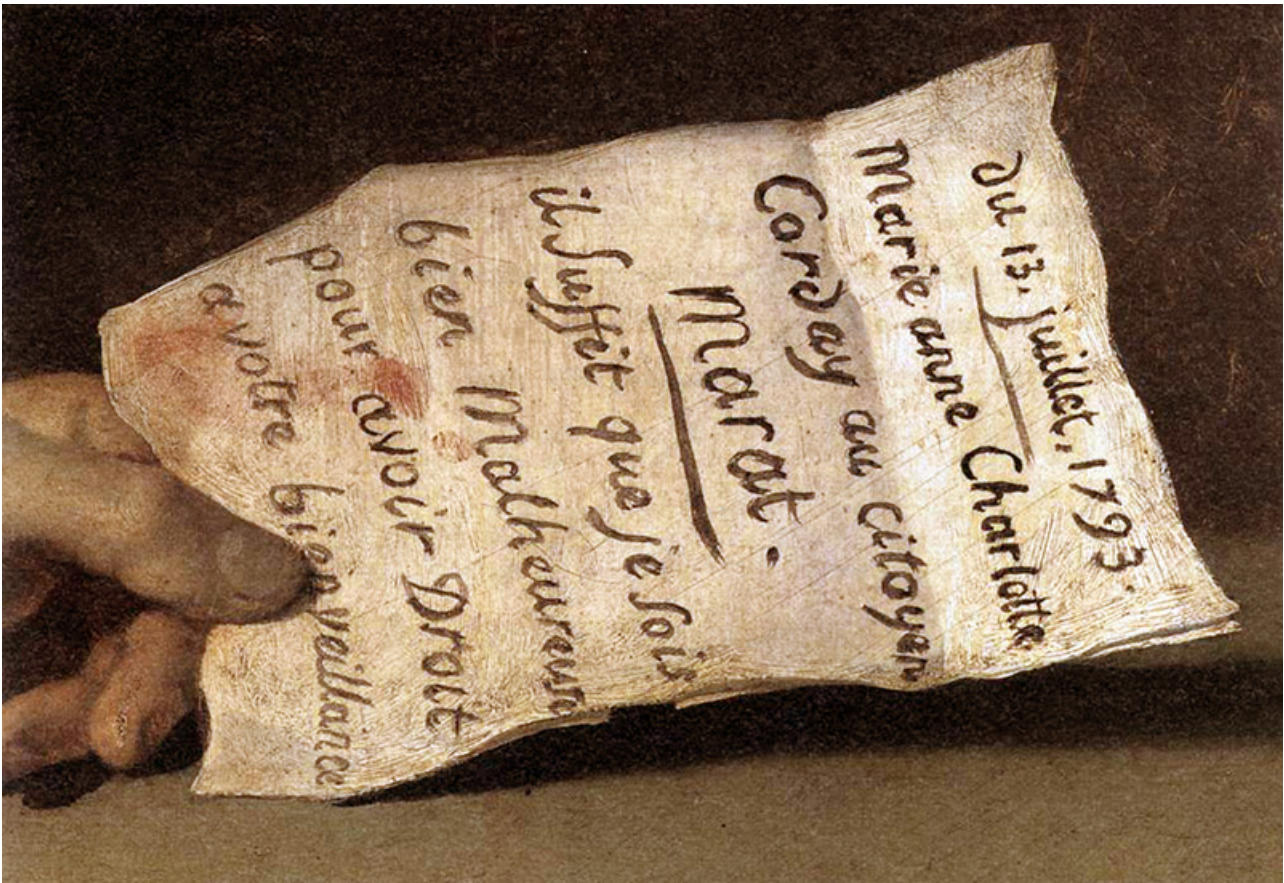 du 13. juillet, 1793.
Marie anne Charlotte
Corday au citoyen
Marat.
il Suffit que je Sois
bien Malheureuse
pour avoir Droit
a votre bienveillance